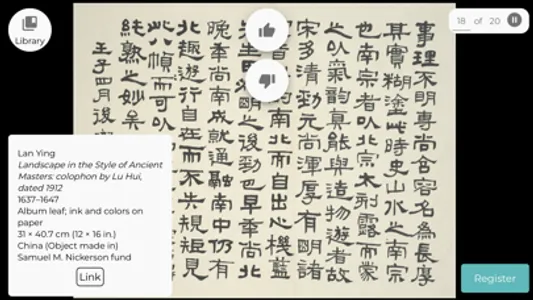 Library
18 of 20
事理不明專尚含容名為長厚
其實糊塗此時史山水之南宗
也南宗者以北宗木刑露而蒙
之以氣韵真能與造物遊者故
宋多清勁元尚渾厚有明諸
南北而自出心機藍
明之後勁也早年尚北
晚年尚南成就通融南中仍有
北趣遊行自在而不失規矩見
此八幀而可以
純熟之妙矣
壬子四月後
Lan Ying
Landscape in the Style of Ancient
Masters: colophon by Lu Hui,
dated 1912
1637–1647
Album leaf; ink and colors on
paper
31 × 40.7 cm (12 × 16 in.)
China (Object made in)
Samuel M. Nickerson fund
Link
Register